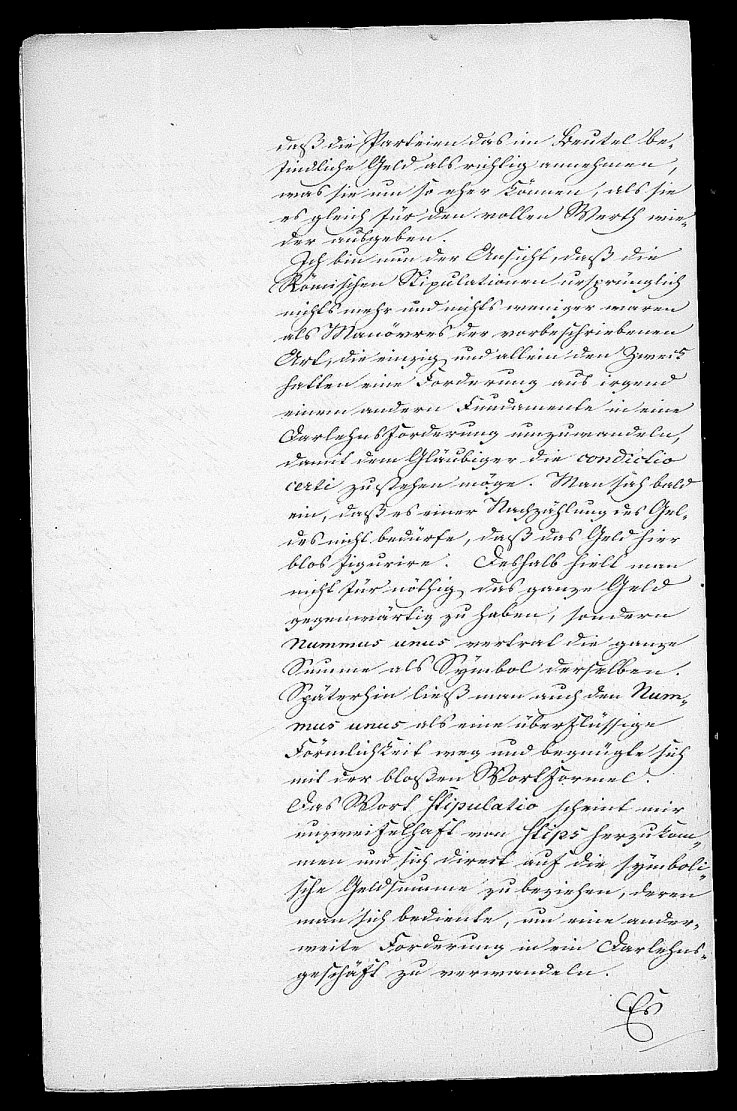 daß die Parteien das im Beutel be-
findliche Geld als richtig annehmen,
was sie um so eher können, als sie
es gleich für den vollen Werth wie-
der ausgeben.
Ich bin nun der Ansicht, daß die
Römischen Stipulationen ursprünglich
nichts mehr und nichts weniger waren
als Manövres der vorbeschriebenen
Art, die einzig und allein den Zweck
hatten eine Forderung aus irgend
einem andern Fundamente in eine
Darlehnsforderung umzuwandeln,
damit dem Gläubiger die condictio
certi zustehen möge. Man sah bald
ein, daß es einer Nachzählung des Gel-
des nicht bedürfe, daß das Geld hier
blos figurire. Deshalb hielt man
nicht für nöthig, das ganze Geld
gegenwärtig zu haben, sondern
Nummus unus vertrat die ganze
Summe als Symbol derselben.
Späterhin ließ man auch den Num-
mus unus als eine überflüssige
Förmlichkeit weg und begnügte sich
mit der bloßen Wortformel.
Das Wort Stipulatio scheint mir
unzweifelhaft von Stips herzukom-
men und sich direct auf die symboli-
sche Geldsumme zu beziehen, deren
man sich bediente, um eine ander-
weite Forderung in ein Darlehns-
geschäft zu verwandeln.
Es